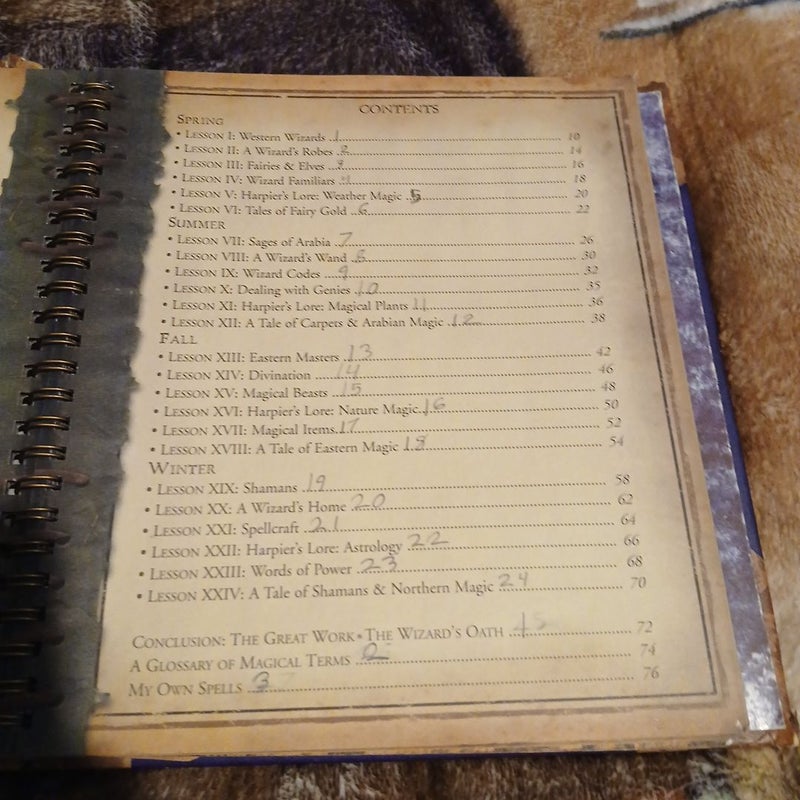 CONTENTS
SPRING
• LESSON I: Western Wizards 1 10
• LESSON II: A Wizard's Robes 2 14
• LESSON III: Fairies & Elves 3 16
• LESSON IV: Wizard Familiars 4 18
• LESSON V: Harpier's Lore: Weather Magic 5 20
• LESSON VI: Tales of Fairy Gold 6 22
SUMMER
• LESSON VII: Sages of Arabia 7 26
• LESSON VIII: A Wizard's Wand 8 30
• LESSON IX: Wizard Codes 9 32
• LESSON X: Dealing with Genies 10 35
• LESSON XI: Harpier's Lore: Magical Plants 11 36
• LESSON XII: A Tale of Carpets & Arabian Magic 12 38
FALL
• LESSON XIII: Eastern Masters 13 42
• LESSON XIV: Divination 14 46
• LESSON XV: Magical Beasts 15 48
• LESSON XVI: Harpier's Lore: Nature Magic 16 50
• LESSON XVII: Magical Items 17 52
• LESSON XVIII: A Tale of Eastern Magic 18 54
WINTER
• LESSON XIX: Shamans 19 58
• LESSON XX: A Wizard's Home 20 62
• LESSON XXI: Spellcraft 21 64
• LESSON XXII: Harpier's Lore: Astrology 22 66
• LESSON XXIII: Words of Power 23 68
• LESSON XXIV: A Tale of Shamans & Northern Magic 24 70
CONCLUSION: THE GREAT WORK • THE WIZARD'S OATH 72
A GLOSSARY OF MAGICAL TERMS 2 74
MY OWN SPELLS 3 76